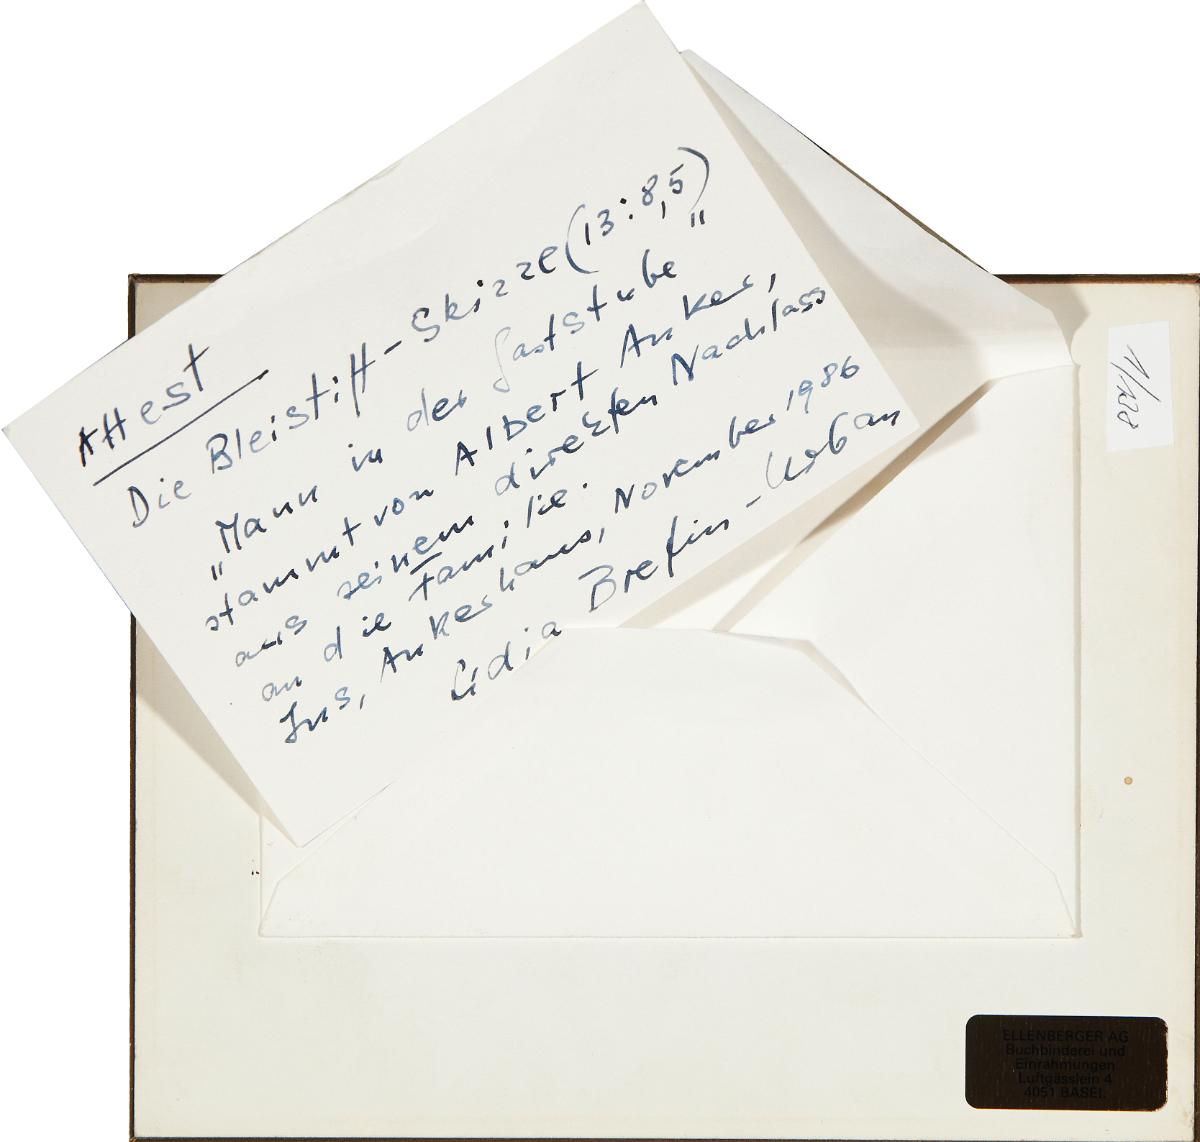 Attest
Die Bleistift-Skizze (13:8,5)
„Mann in der Gaststube"
stammt von Albert Anker,
aus seinem direkten Nachlass
an die Familie.
Ins, Ankerhaus, November 1986
Lidia Brefin-Urban
1/128
ELLENBERGER AG
Buchbinderei und
Einrahmungen
Luftgässlein 4
4051 BASEL